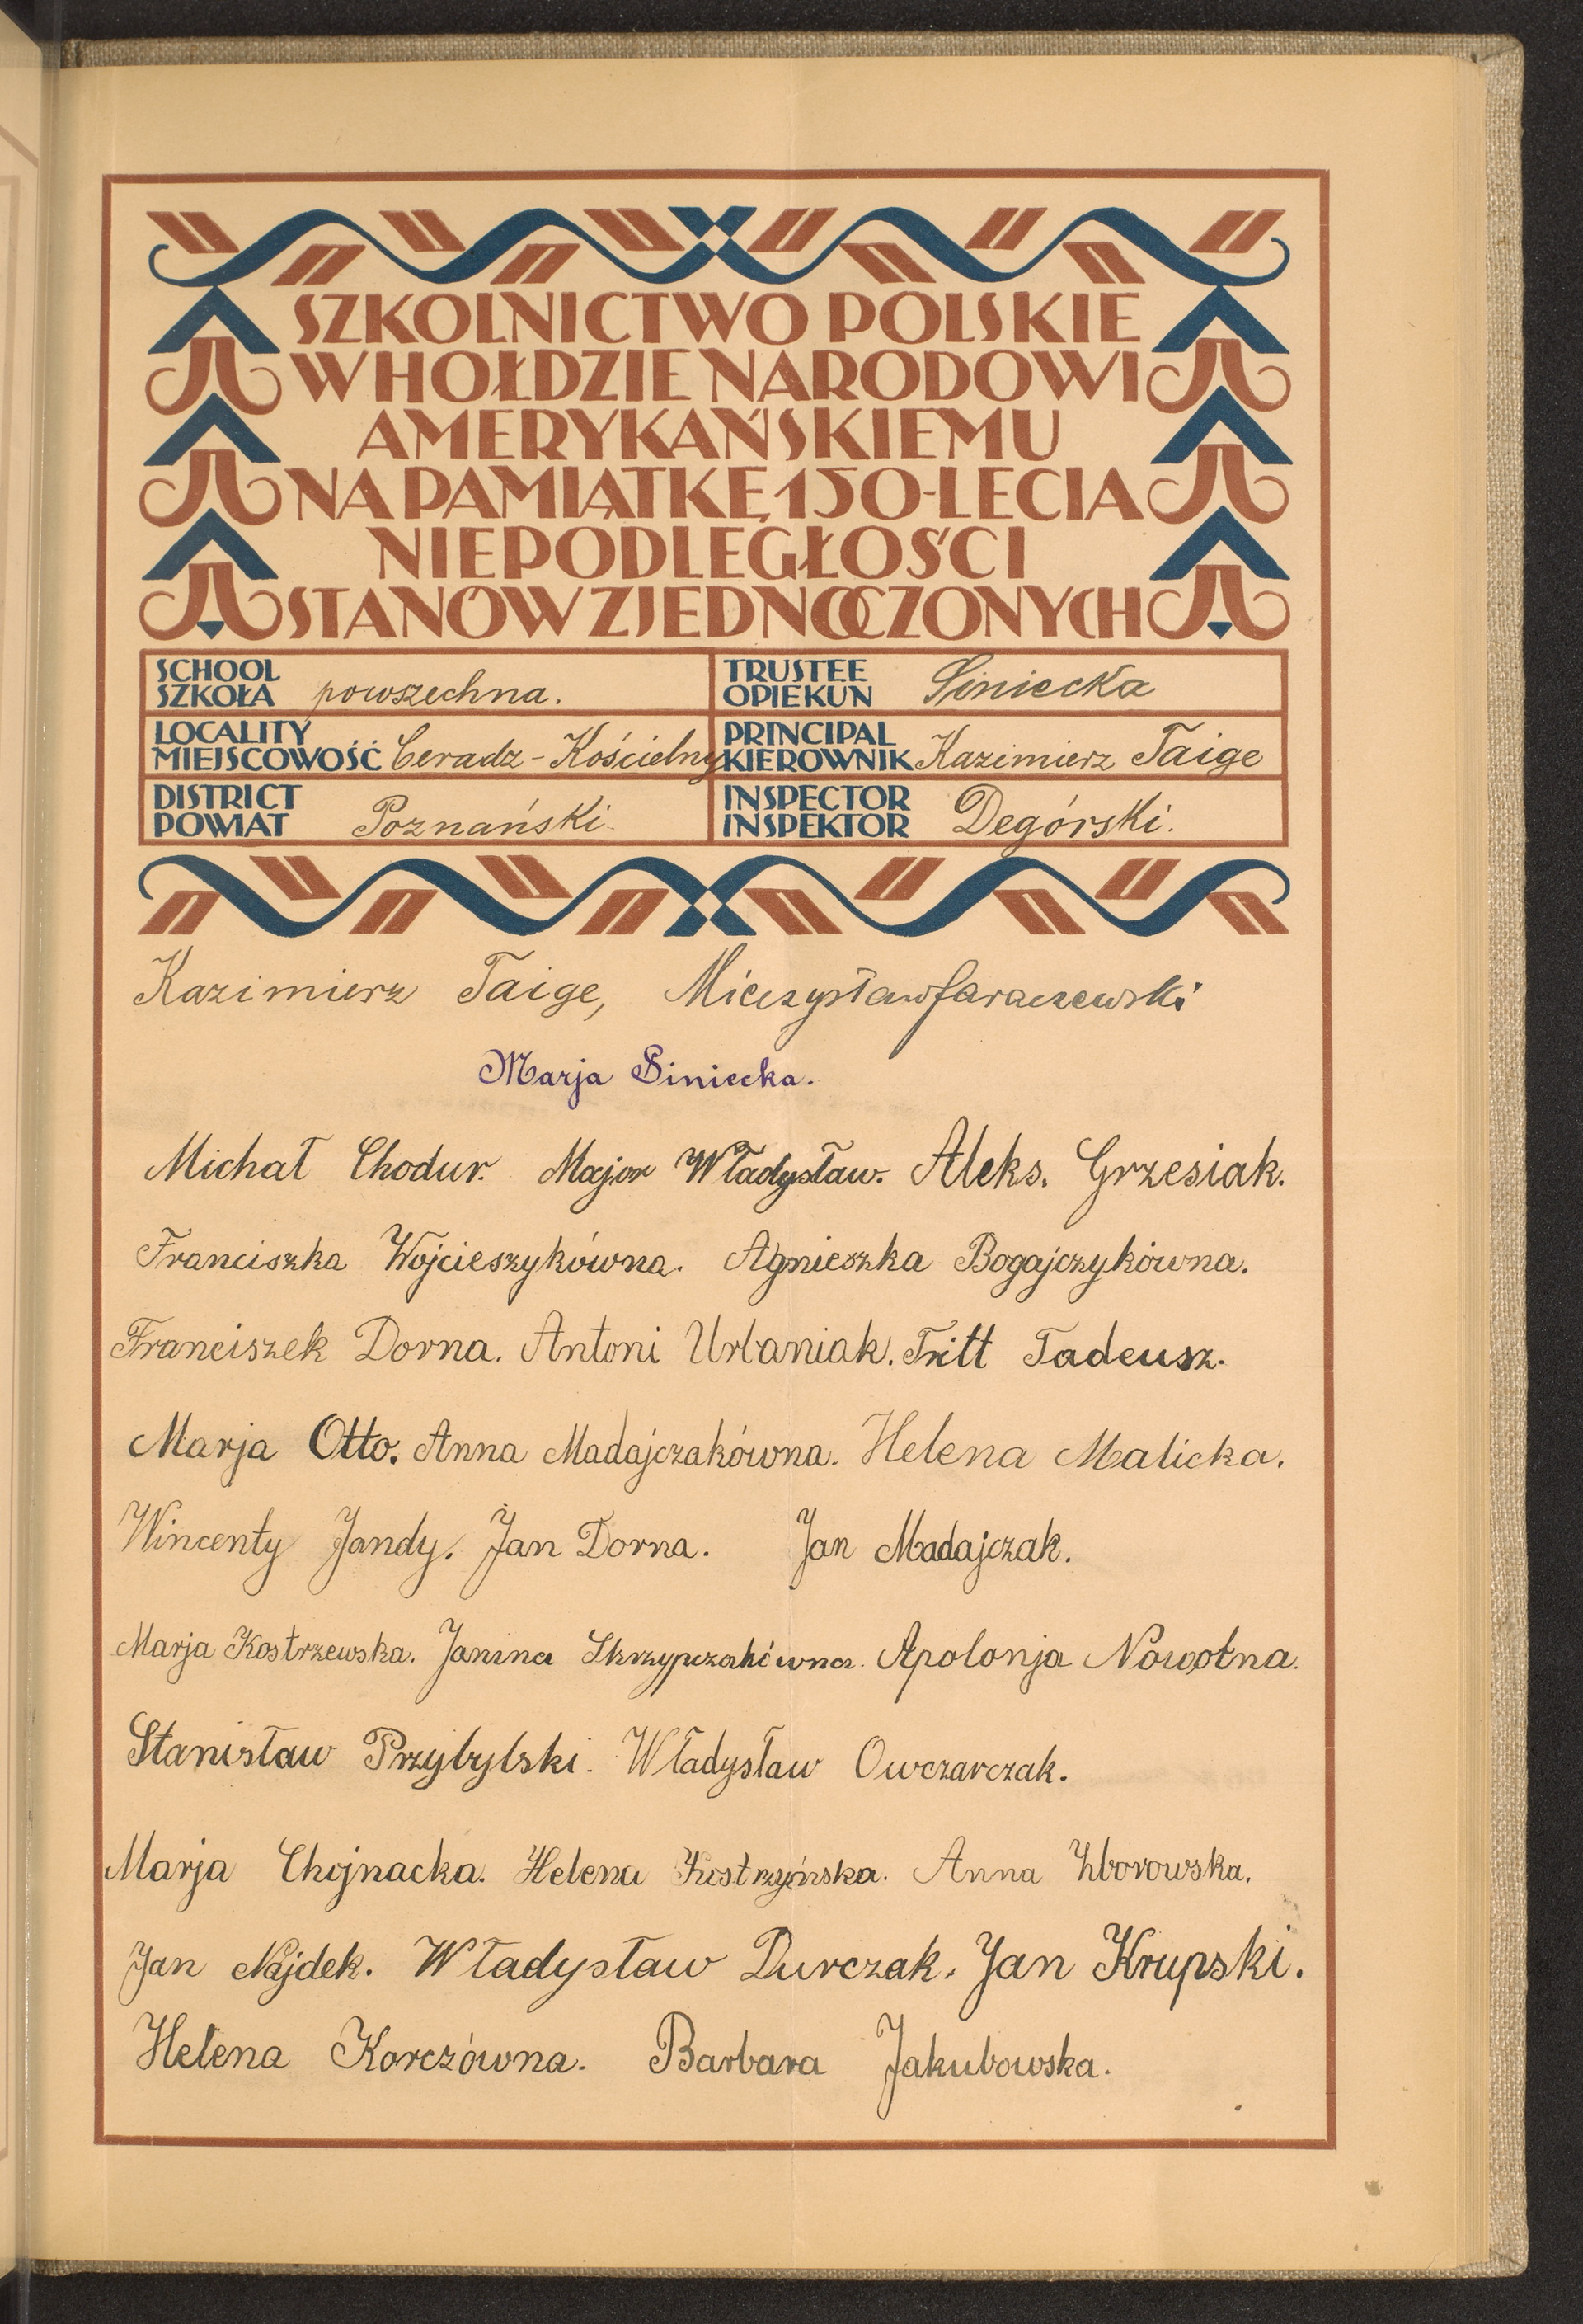 SZKOLNICTWO POLSKIE
W HOŁDZIE NARODOWI
AMERYKAŃSKIEMU
NA PAMIĄTKĘ 150-LECIA
NIEPODLEGŁOŚCI
STANÓW ZJEDNOCZONYCH
SCHOOL
SZKOŁA powszechna.
TRUSTEE
OPIEKUN Siniecka
LOCALITY
MIEJSCOWOŚĆ Ceradz-Kościelny
PRINCIPAL
KIEROWNIK Kazimierz Taige
DISTRICT
POWIAT Poznański
INSPECTOR
INSPEKTOR Degórski.
Kazimierz Taige, Mieczysław Saraczewski
Marja Siniecka.
Michał Chodur. Major Władysław. Aleks. Grzesiak.
Franciszka Wojcieszykówna. Agnieszka Bogajczykówna.
Franciszek Dorna. Antoni Urbaniak. Tritt Tadeusz.
Marja Otto. Anna Madajczakówna. Helena Malicka.
Wincenty Jandy. Jan Dorna. Jan Madajczak.
Marja Kostrzewska. Janina Skrzypczakówna. Apolonja Nowotna.
Stanisław Przybylski. Władysław Owczarczak.
Marja Chojnacka. Helena Kostrzyńska. Anna Zborowska.
Jan Najdek. Władysław Durczak. Jan Krupski.
Helena Korczówna. Barbara Jakubowska.